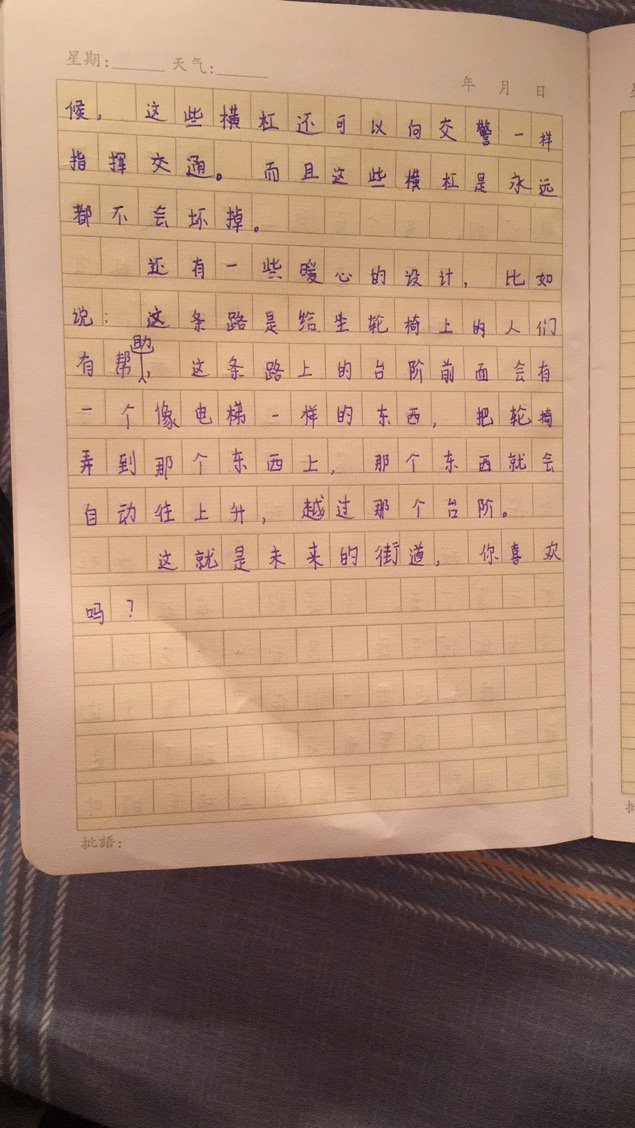 星期:_____ 天气:_____
年 月 日
候，这些横杠还可以向交警一样
指挥交通。而且这些横杠是永远
都不会坏掉。
还有一些暖心的设计，比如
说：这条路是给坐轮椅上的人们
有帮助，这条路上的台阶前面会有
一个像电梯一样的东西，把轮椅
弄到那个东西上，那个东西就会
自动往上升，越过那个台阶。
这就是未来的街道，你喜欢
吗？
批語: